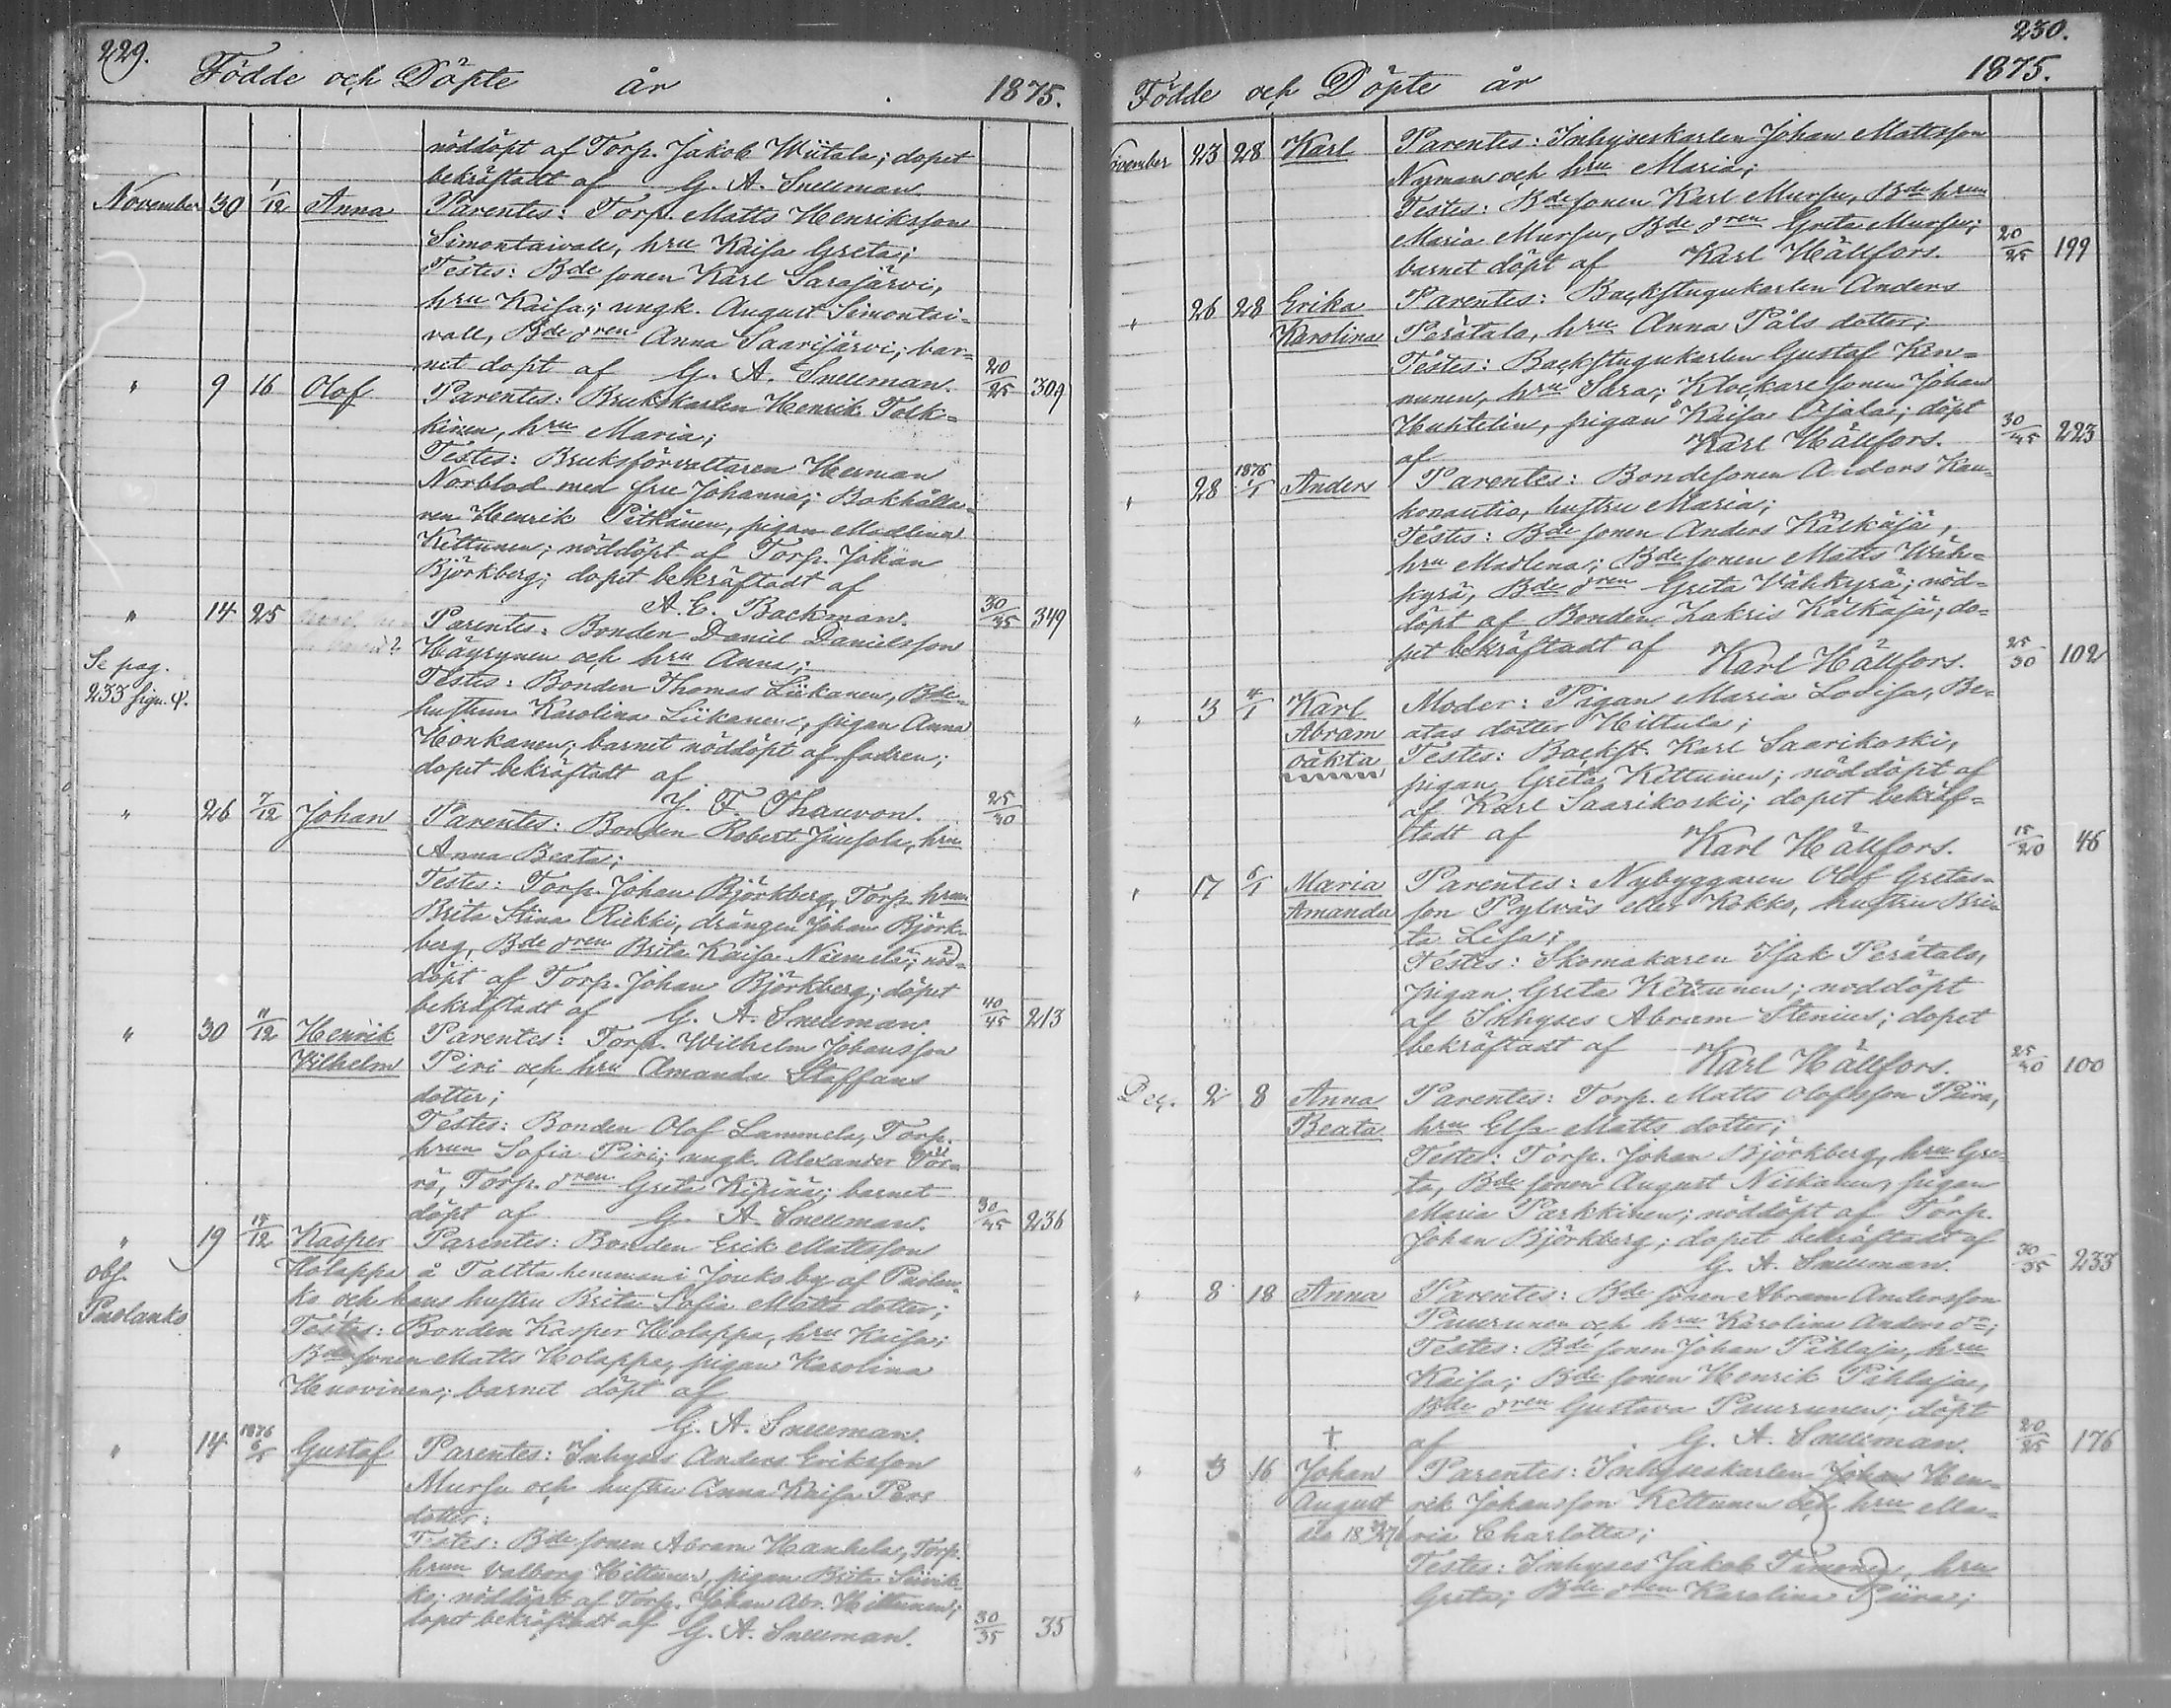 229.
Födde och Döpte år 1875.
nöddöpt af Torp. Jakob Wiitala; dopet
bekräftadt af G. A. Snellman
November 30 1/12 Anna Parentes: Torp. Matts Henriksson
Simontaivall, hru Kaisa Greta;
Testes: Bde sonen Karl Sarajärvi,
hru Kaisa; ungk. August Simontai-
vall, Bde dren Anna Saarijärvi; bar-
net döpt af G. A. Snellman. 20/25 309
" 9 16 Olof Parentes: Brukskarlen Henrik Tolk-
kinen, hru Maria;
Testes: Bruksförvaltaren Herman
Norblad med fru Johanna; Bokhålla-
ren Henrik Pitkänen, pigan Madlena
Kettunen; nöddöpt af Torp. Johan
Björkberg; dopet bekräftadt af
A. E. Backman. 30/35 349
" 14 25 Parentes: Bonden Daniel Danielsson
Häyrynen och hru Anna;
Se pag.
233 sign. φ.
Testes: Bonden Thomas Liikanen, Bde
hustrun Karolina Liikanen, pigan Anna
Honkanen; barnet nöddöpt af fadren;
dopet bekräftadt af
J. F. Thauvon. 25/30
" 26 7/12 Johan Parentes: Bonden Robert Juusola, hru
Anna Beata;
Testes: Torp. Johan Björkberg, Torp. hrun
Brita Stina Riekki, drängen Johan Björk-
berg, Bde dren Brita Kaisa Niemelä; nöd-
döpt af Torp. Johan Björkberg; dopet
bekräftadt af G. A. Snellman. 40/45 213
" 30 11/12 Henrik Parentes: Torp. Wilhelm Johansson
Vilhelm Piri och hru Amanda Staffans
dotter;
Testes: Bonden Olof Lammela, Torp.
hrun Sofia Piri; ungk. Alexander Tör-
rö, Torp. dren Greta Kipinä; barnet
döpt af G. A. Snellman. 30/45 236
" 19 18/12 Kasper Parentes: Bonden Erik Mattsson
obs. Holappa å Taltta hemman i Jouko by af Puolan-
Puolanko ko och hans hustru Brita Sofia Matts dotter;
Testes: Bonden Kasper Holappa, hru Kaisa;
Bde sonen Matts Holappa, pigan Karolina
Huovinen; barnet döpt af
G. A. Snellman.
" 14 1876 6/5 Gustaf Parentes: Inhyses Anders Eriksson
Mursu och hustru Anna Kaisa Pers
dotter:
Testes: Bde sonen Abram Hankela, Torp.
hrun Valborg Hiltunen, pigan Brita Siivik-
ko; nöddöpt af Torp. Johan Abr. Hiltunen;
dopet bekräftadt af G. A. Snellman. 30/35 35
230.
Födde och Döpte år 1875.
November 23 28 Karl Parentes: Inhyseskarlen Johan Mattsson
Nyman och hru Maria;
Testes: Bde sonen Karl Mursu, Bde hrun
Maria Mursu, Bde dren Greta Mursu;
barnet döpt af Karl Hällfors. 20/25 199
" 26 28 Erika Parentes: Backstugukarlen Anders
Karolina Perätalo, hru Anna Påls dotter;
Testes: Backstugukarlen Gustaf Kin-
nunen, hru Sara; Klockare sonen Johan
Huhtelin, pigan Kaisa Ojala; döpt
af Karl Hällfors. 30/45 223
" 28 1876 1/1 Anders Parentes: Bondesonen Anders Kau-
konautio, hustru Maria;
Testes: Bde sonen Anders Kälkäjä,
hru Madlena; Bde sonen Matts Wäh-
kyrä, Bde dren Greta Vähkyrä; nöd-
döpt af Bonden Zakris Kälkäjä; do-
pet bekräftadt af Karl Hällfors. 25/30 102
" 3 4/1 Karl Moder: Pigan Maria Lovisa, Be-
Abram atas dotter Hiltula;
oäkta Testes: Backst. Karl Saarikoski,
pigan Greta Kettunen; nöddöpt af
af Karl Saarikoski; dopet bekräf-
tadt af Karl Hällfors. 15/20 46
" 17 6/1 Maria Parentes: Nybyggaren Olof Gretas-
Amanda son Pylväs eller Kokko, hustru Bri-
ta Lisa;
Testes: Skomakaren Isak Perätalo,
pigan Greta Kettunen; nöddöpt
af Inhyses Abram Stenius; dopet
bekräftadt af Karl Hällfors. 25/30 100
Dec. 2 8 Anna Parentes: Torp. Matts Olofsson Piira,
Beata hru Elsa Matts dotter;
Testes: Torp. Johan Björkberg, hru Gre-
ta, Bde sonen August Niskanen, pigan
Maria Parkkinen; nöddöpt af Torp.
Johan Björkberg; dopet bekräftadt af
G. A. Snellman. 30/35 233
" 8 18 Anna Parentes: Bde sonen Abram Andersson
Puurunen och hru Karolina Anders dr;
Testes: Bde sonen Johan Pihlaja, hru
Kaisa; Bde sonen Henrik Pihlaja,
Bde dren Gustava Puurunen; döpt
† af G. A. Snellman. 20/25 176
" 3 16 Johan Parentes: Inhyseskarlen Johan Hen-
August rik Johansson Kettunen och hru Ma-
ria Charlotta;
Testes: Inhyses Jakob Timonen, hru
Greta; Bde dren Karolina Piira;